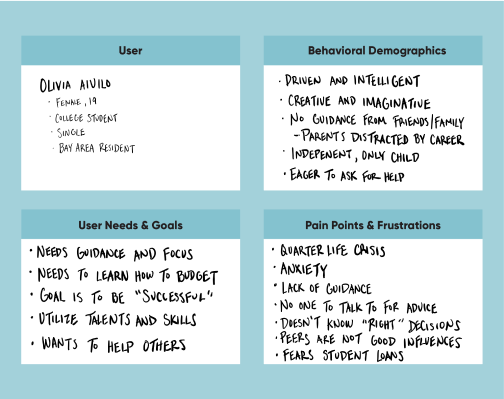 User
OLIVIA AIVILO
· FEMALE, 19
· COLLEGE STUDENT
· SINGLE
· BAY AREA RESIDENT
Behavioral Demographics
· DRIVEN AND INTELLIGENT
· CREATIVE AND IMAGINATIVE
· NO GUIDANCE FROM FRIENDS/FAMILY
- PARENTS DISTRACTED BY CAREER
· INDEPENENT, ONLY CHILD
· EAGER TO ASK FOR HELP
User Needs & Goals
· NEEDS GUIDANCE AND FOCUS
· NEEDS TO LEARN HOW TO BUDGET
· GOAL IS TO BE "SUCCESSFUL"
· UTILIZE TALENTS AND SKILLS
· WANTS TO HELP OTHERS
Pain Points & Frustrations
· QUARTER LIFE CRISIS
· ANXIETY
· LACK OF GUIDANCE
· NO ONE TO TALK TO FOR ADVICE
· DOESN'T KNOW "RIGHT" DECISIONS
· PEERS ARE NOT GOOD INFLUENCES
· FEARS STUDENT LOANS